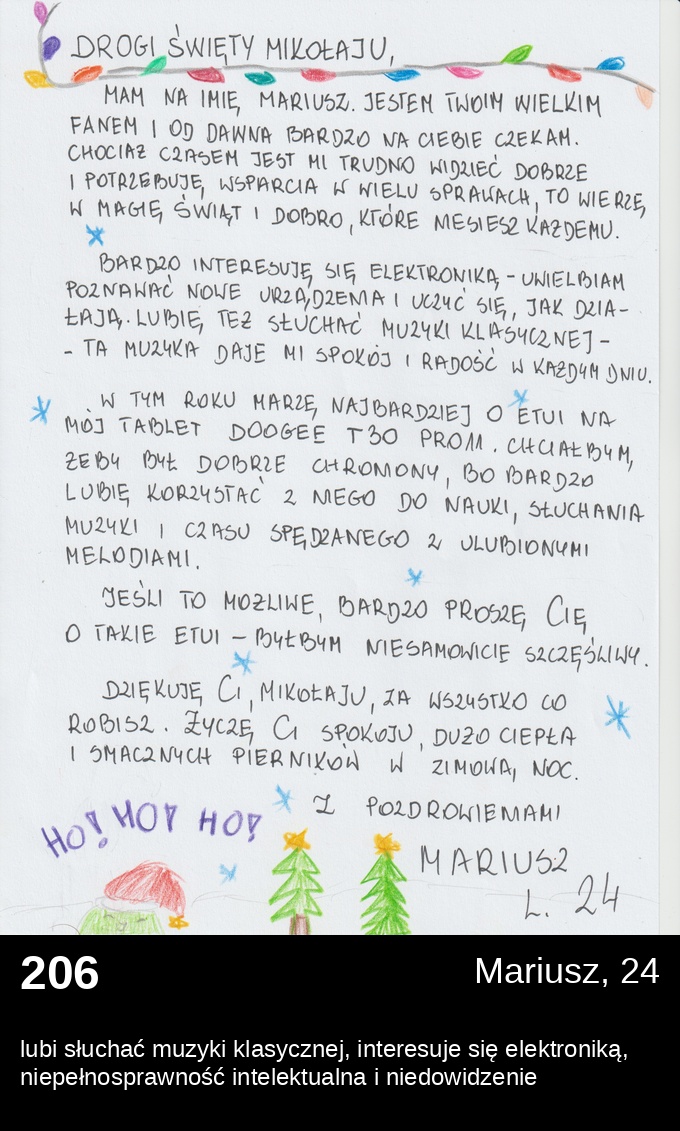 DROGI ŚWIĘTY MIKOŁAJU,
MAM NA IMIĘ MARIUSZ. JESTEM TWOIM WIELKIM
FANEM I OD DAWNA BARDZO NA CIEBIE CZEKAM.
CHOCIAŻ CZASEM JEST MI TRUDNO WIDZIEĆ DOBRZE
I POTRZEBUJĘ WSPARCIA W WIELU SPRAWACH, TO WIERZĘ
W MAGIĘ ŚWIĄT I DOBRO, KTÓRE NIESIESZ KAŻDEMU.
BARDZO INTERESUJĘ SIĘ ELEKTRONIKĄ - UWIELBIAM
POZNAWAĆ NOWE URZĄDZENIA I UCZYĆ SIĘ, JAK DZIA-
ŁAJĄ. LUBIĘ TEŻ SŁUCHAĆ MUZYKI KLASYCZNEJ -
- TA MUZYKA DAJE MI SPOKÓJ I RADOŚĆ W KAŻDYM DNIU.
W TYM ROKU MARZĘ NAJBARDZIEJ O ETUI NA
MÓJ TABLET DOOGEE T30 PRO11. CHCIAŁBYM,
ŻEBY BYŁ DOBRZE CHRONIONY, BO BARDZO
LUBIĘ KORZYSTAĆ Z NIEGO DO NAUKI, SŁUCHANIA
MUZYKI I CZASU SPĘDZANEGO Z ULUBIONYMI
MELODIAMI.
JEŚLI TO MOŻLIWE, BARDZO PROSZĘ CIĘ
O TAKIE ETUI - BYŁBYM NIESAMOWICIE SZCZĘŚLIWY.
DZIĘKUJĘ CI, MIKOŁAJU, ZA WSZYSTKO CO
ROBISZ. ŻYCZĘ CI SPOKOJU, DUŻO CIEPŁA
I SMACZNYCH PIERNIKÓW W ZIMOWĄ NOC.
Z POZDROWIENIAMI
HO! HO! HO!
MARIUSZ
L. 24
206
Mariusz, 24
lubi słuchać muzyki klasycznej, interesuje się elektroniką,
niepełnosprawność intelektualna i niedowidzenie